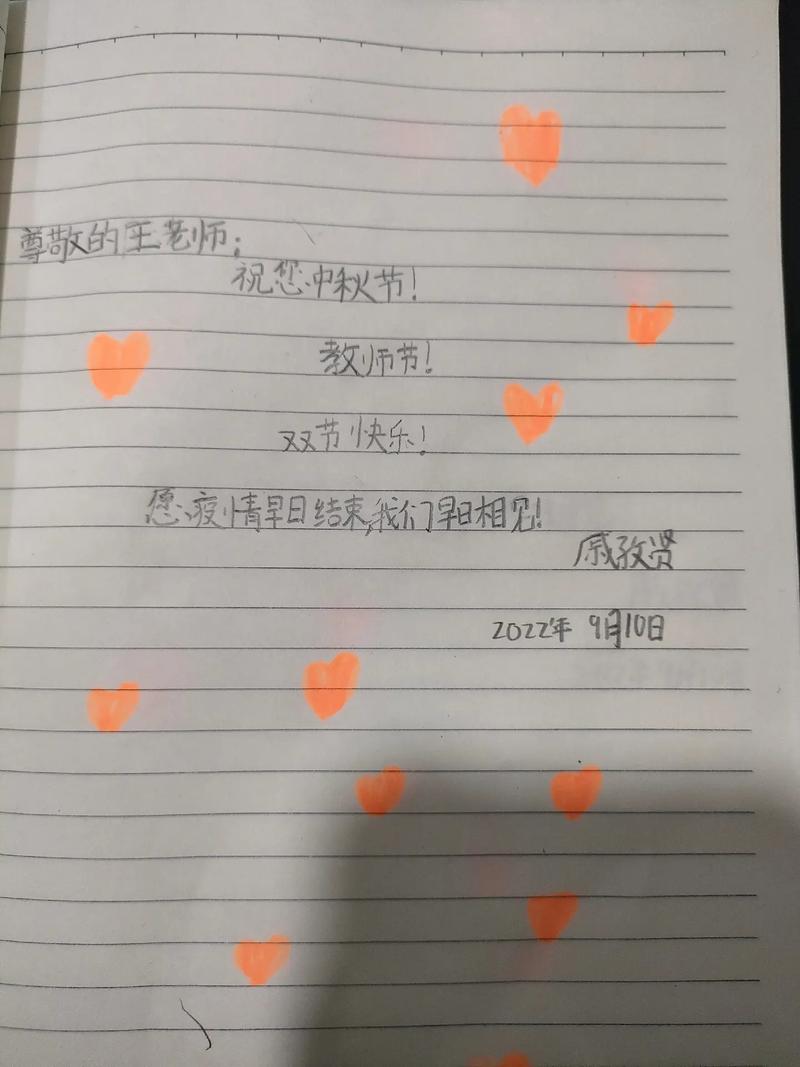 尊敬的王老师：
祝您中秋节！
教师节！
双节快乐！
愿疫情早日结束，我们早日相见！
戚孜贤
2022年 9月10日